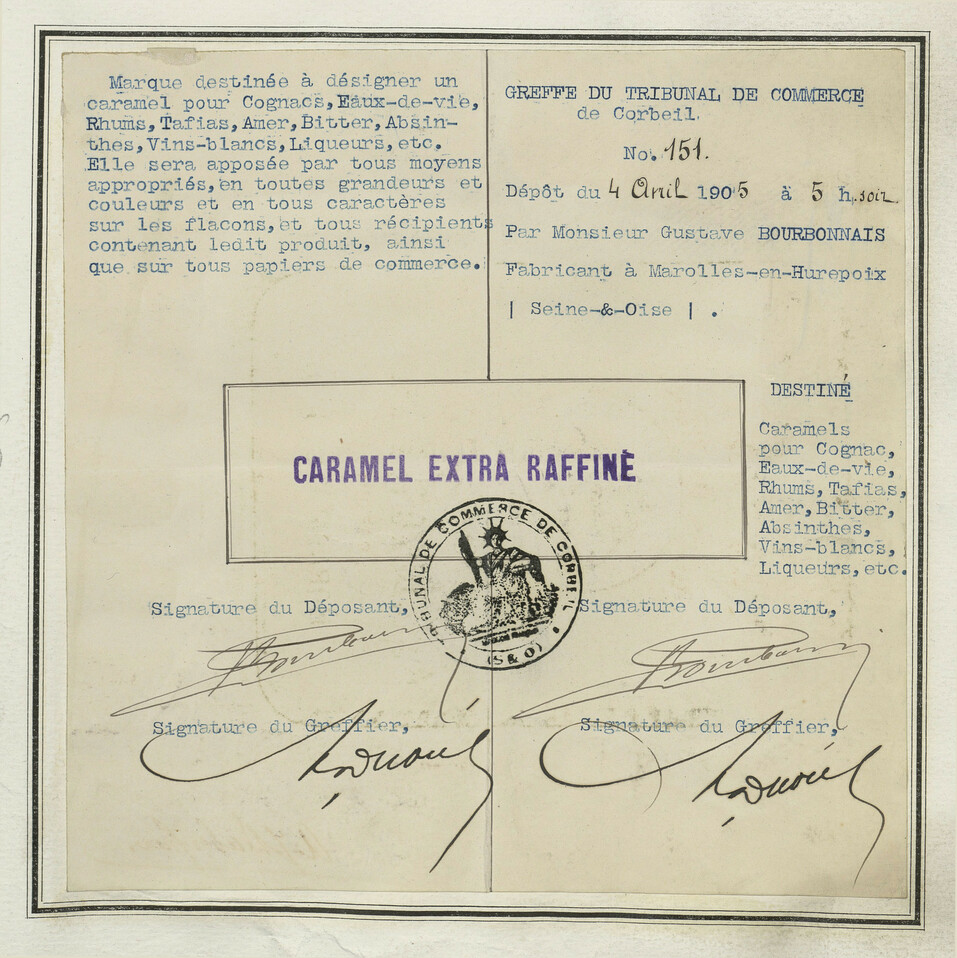 Marque destinée à désigner un
caramel pour Cognacs, Eaux-de-vie,
Rhums, Tafias, Amer, Bitter, Absin-
thes, Vins-blancs, Liqueurs, etc.
Elle sera apposée par tous moyens
appropriés, en toutes grandeurs et
couleurs et en tous caractères
sur les flacons, et tous récipients
contenant ledit produit, ainsi
que sur tous papiers de commerce.
GREFFE DU TRIBUNAL DE COMMERCE
de Corbeil.
No. 151.
Dépôt du 4 Avril 1905 à 5 h. soir
Par Monsieur Gustave BOURBONNAIS
Fabricant à Marolles-en-Hurepoix
| Seine-&-Oise | .
CARAMEL EXTRA RAFFINÉ
DESTINÉ
Caramels
pour Cognac,
Eaux-de-vie,
Rhums, Tafias,
Amer, Bitter,
Absinthes,
Vins-blancs,
Liqueurs, etc.
TRIBUNAL DE COMMERCE DE CORBEIL
(S & O)
Signature du Déposant,
Signature du Déposant,
Signature du Greffier,
Signature du Greffier,